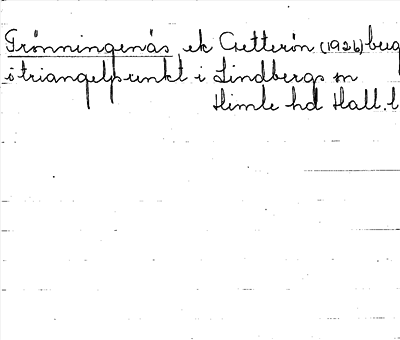 Trönningenäs ek Getterön (1926) berg
o triangelpunkt i Lindbergs sn
Himle hd Hall. l